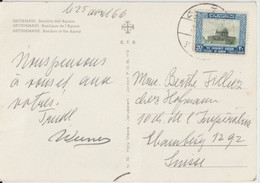 le 25 avril 66
GETSEMANI. Basilica dell'Agonia
GETHSEMANI. Basilique de l'Agonie
GETHSEMANE. Basilica of the Agony
Nous pensons
à vous et aux
vôtres.
Trudl
Werner
Mme. Berthe
chez Hofmann
10 ch. de l'Impératrice
Chambésy 1292
Suisse